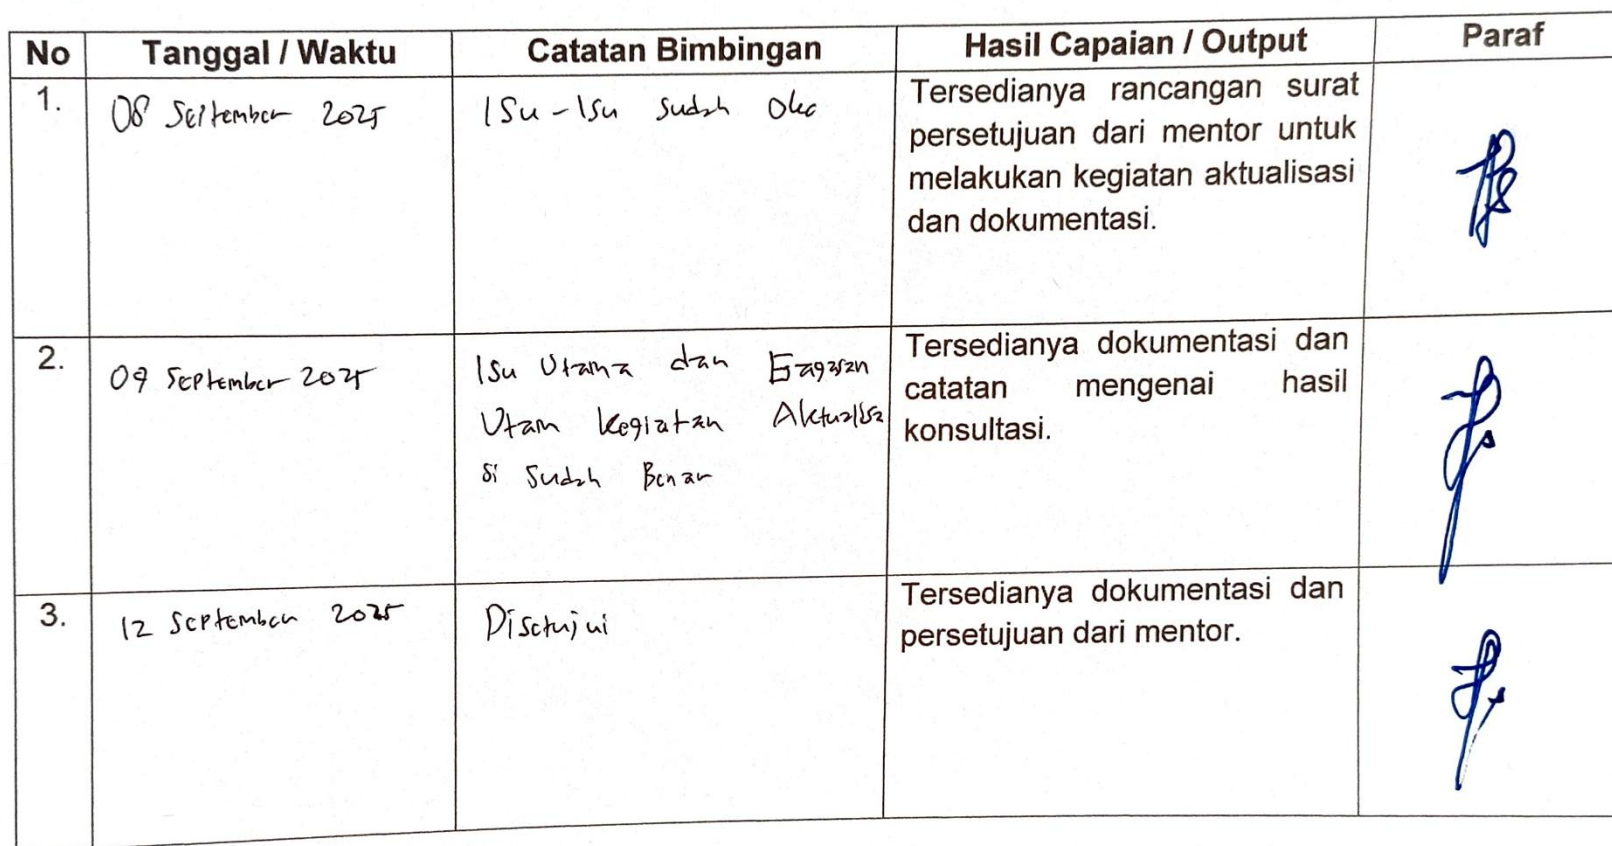 No Tanggal / Waktu Catatan Bimbingan Hasil Capaian / Output Paraf
1.
08 September 2025
Isu-Isu sudah Oke
Tersedianya rancangan surat
persetujuan dari mentor untuk
melakukan kegiatan aktualisasi
dan dokumentasi.
2.
09 September 2025
Isu Utama dan Gagasan
Utam kegiatan Aktualisa
si Sudah Benar
Tersedianya dokumentasi dan
catatan mengenai hasil
konsultasi.
3.
12 September 2025
Disetujui
Tersedianya dokumentasi dan
persetujuan dari mentor.